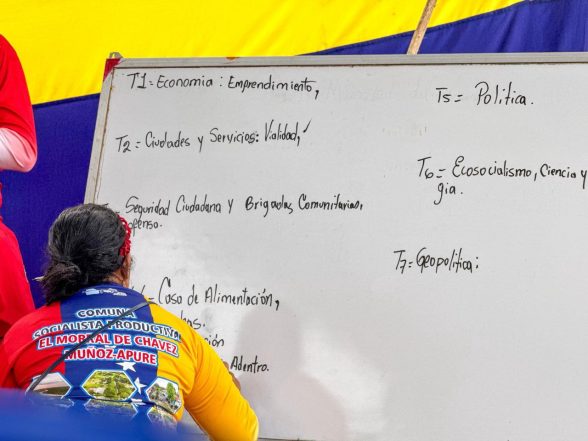 T1= Economia: Emprendimiento,
T2= Ciudades y Servicios: Vialidad,
Seguridad Ciudadana y Brigadas Comunitarias.
Casa de Alimentación,
Adentro.
T5= Politica.
T6= Ecosocialismo, Ciencia y
gia.
T7= Geopolitica:
COMUNA
SOCIALISTA PRODUCTIVA
EL MORRAL DE CHÁVEZ
MUÑOZ-APURE